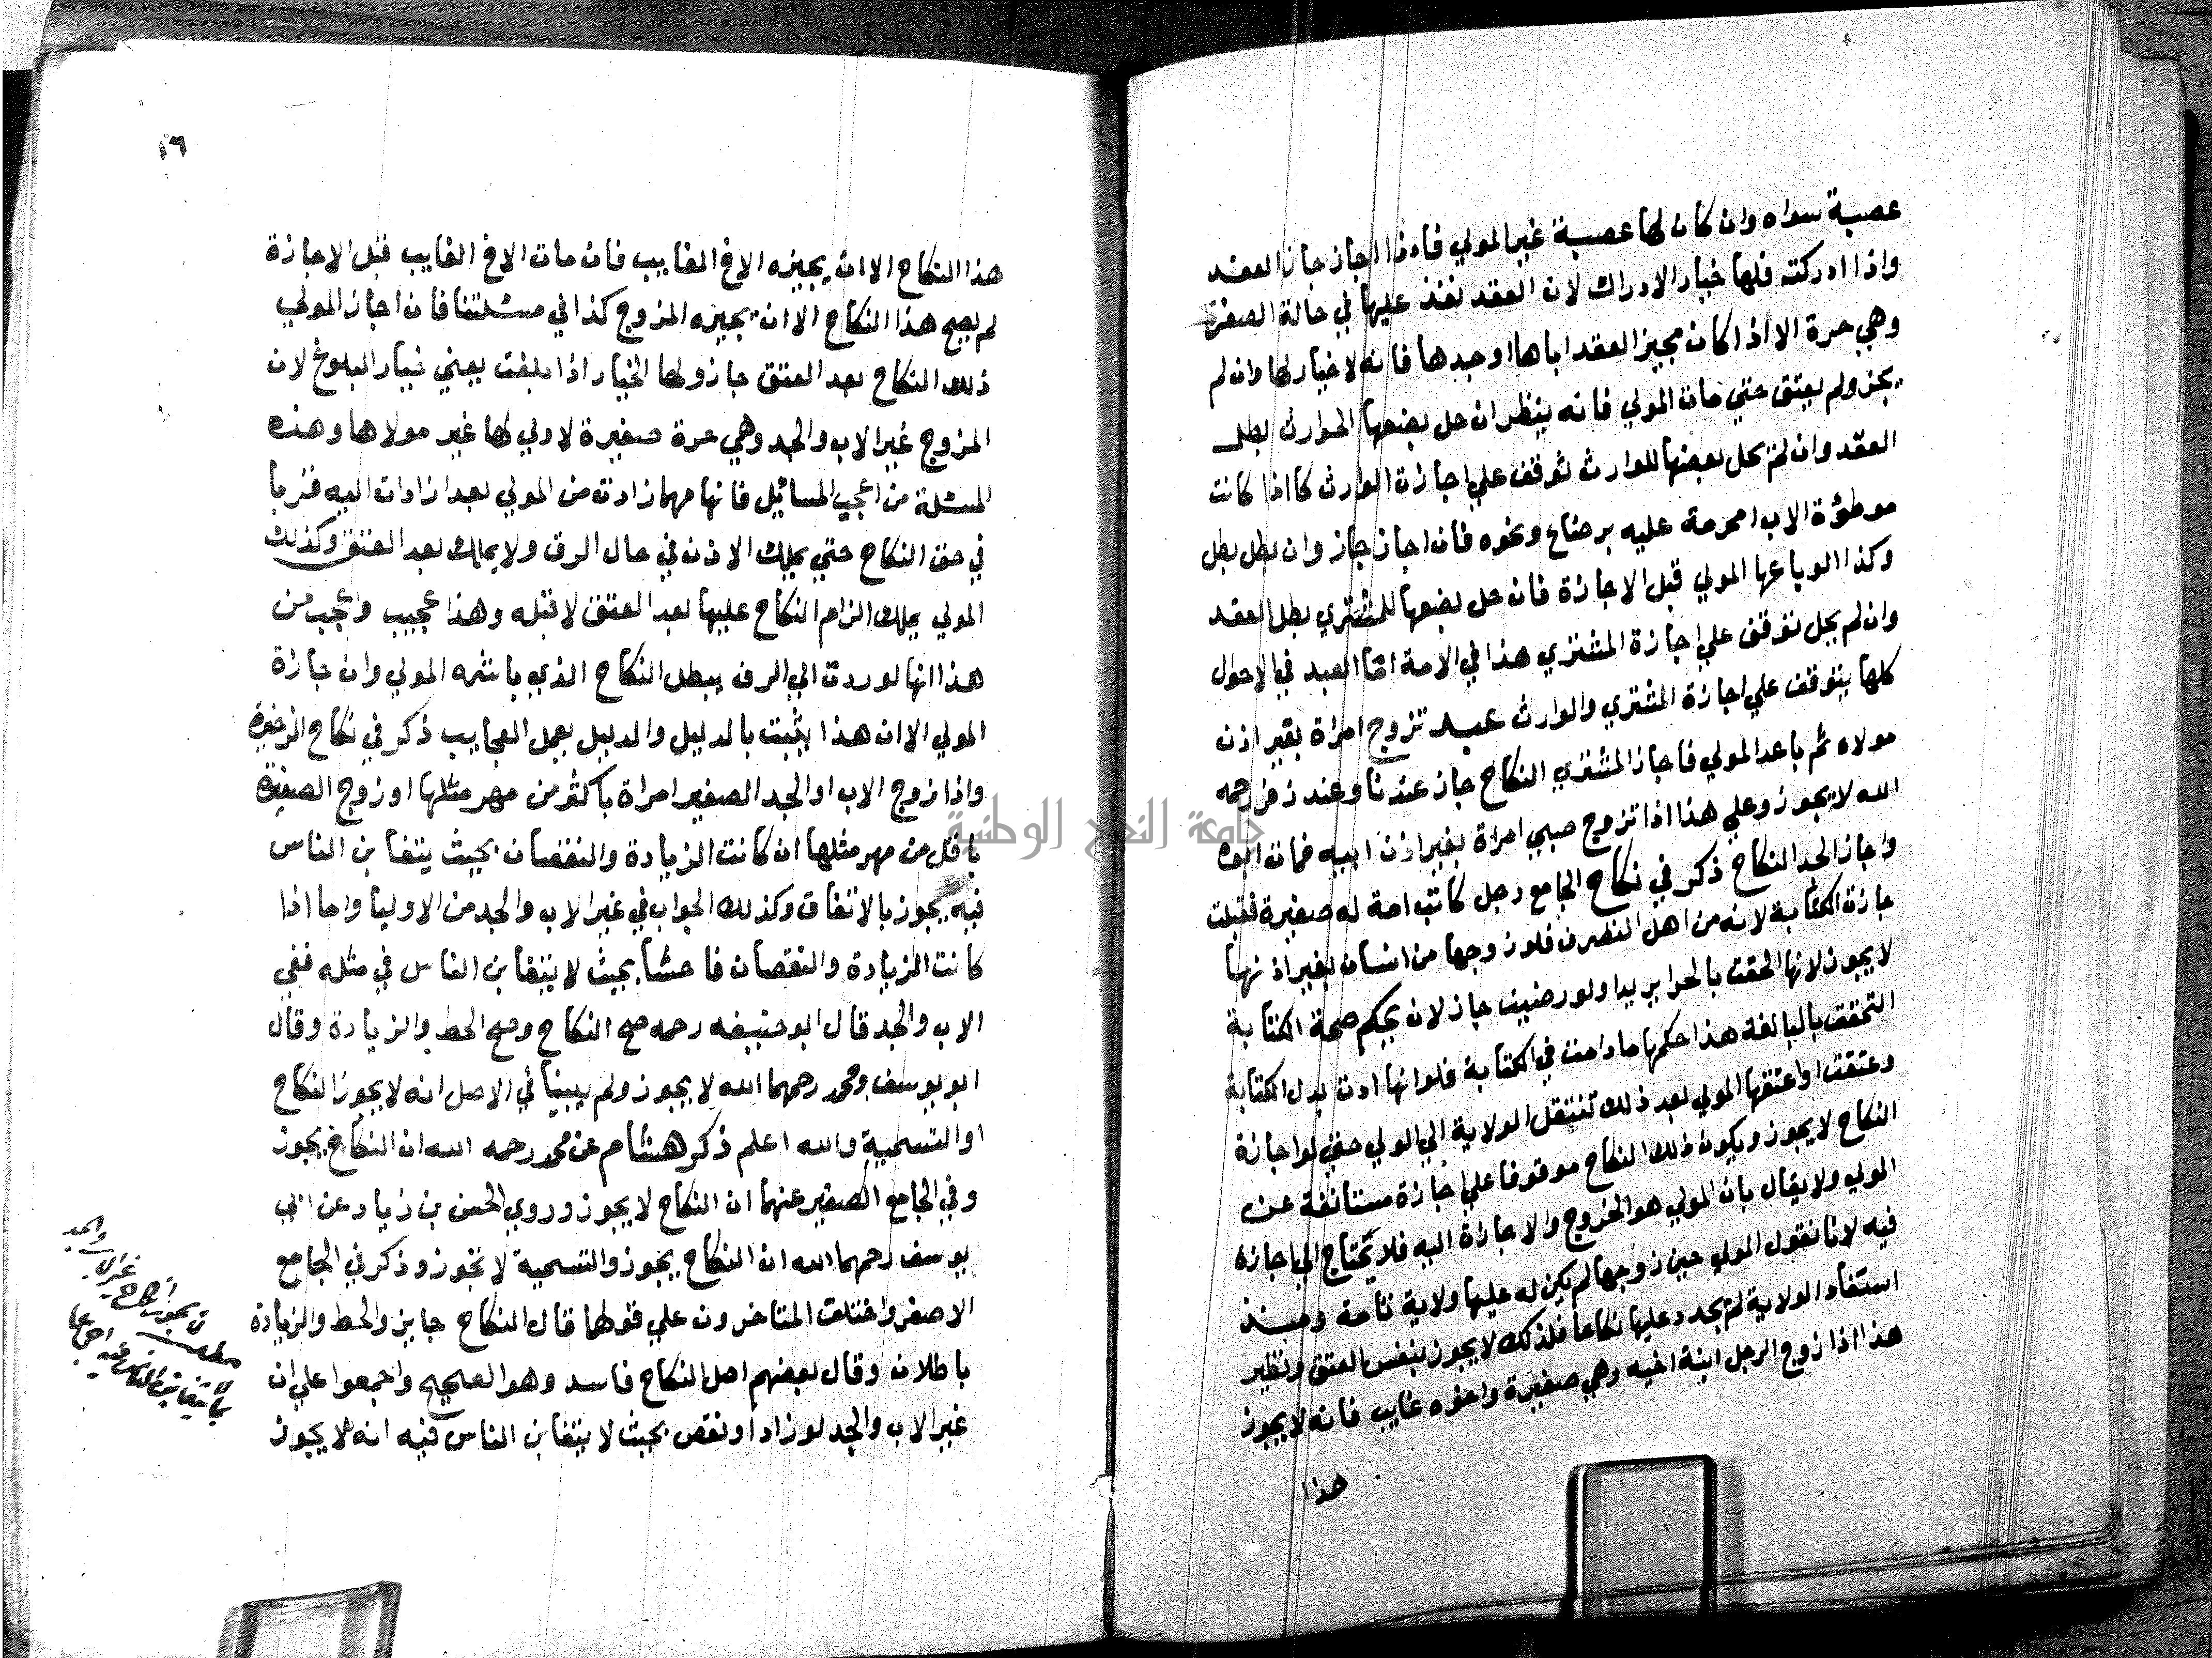 عصبة سواه وان كان لها عصبة غير المولي فاذا اجاز جاز العقد
واذا ادركته فلها خيار الادراك لان العقد نفذ عليها في حالة الصغر
وهي حرة الا اذا كان مجيز العقد اباها او جدها فانه لا خيار لها وان لم
يجز ولم يعتق حتي مات المولي فانه ينظر ان حل بضعها الوارث بطل
العقد وان لم يحل بعضها للوارث توقف علي اجازة الوارث كما اذا كانت
موطؤة الاب او محرمة عليه برضاع ونحوه فان اجاز جاز وان بطل بطل
وكذا لو باعها المولي قبل الاجازة فان حل بضعها للمشتري بطل العقد
وان لم يحل توقف علي اجازة المشتري هذا في الامة اما العبد في الاحوال
كلها يتوقف علي اجازة المشتري والوارث عبد تزوج امراة بغير اذن
مولاه ثم باعه المولي فاجاز المشتري النكاح جاز عندنا وعند زفر رحمه
الله لا يجوز وعلي هذا اذا تزوج صبي امراة بغير اذن ابيه فمات ابوه
واجاز الجد النكاح ذكر في نكاح الجامع رجل كاتب امة له صغيرة فقبلت
جازت الكتابة لانه من اهل التصرف فلو زوجها من انسان بغير اذنها
لا يجوز لانها الحقت بالحراير يدا ولو رضيت جاز لان بحكم صحة الكتابة
التحقت بالبالغة هذا حكمها ما دامت في الكتابة فلو انها ادت بدل الكتابة
وعتقت او اعتقها المولي بعد ذلك تنتقل الولاية الي المولي حتي لو اجازة
النكاح لا يجوز ويكون ذلك النكاح موقوفا علي اجازة مستانفة عن
المولي ولا يقال بان المولي هو المزوج والاجازة اليه فلا يحتاج الي اجازة
فيه لانا نقول المولي حين زوجها لم يكن له عليها ولاية تامة ومنذ
استفاد الولاية لم يجدد عليها نكاحا فلذلك لا يجوز بنفس العتق ونظير
هذا اذا زوج الرجل ابنة اخيه وهي صغيرة واخوه غايب فانه لا يجوز
هذا
١٦
هذا النكاح الا ان يجيزه الاخ الغايب فان مات الاخ الغايب قبل الاجازة
لم يصح هذا النكاح الا ان يجيزه المزوج كذا في مسئلتنا فان اجاز المولي
ذلك النكاح بعد العتق جاز ولها الخيار اذا بلغت يعني خيار البلوغ لان
المزوج غير الاب والجد وهي حرة صغيرة لا ولي لها غير مولاها وهذه
المسئلة من اعجب المسائيل فانها مهما زادت من المولي بعدا زادت اليه قربا
في حق النكاح حتي يملك الاذن في حال الرق ولا يملك بعد العتق وكذلك
المولي يملك الزام النكاح عليها بعد العتق لا قبله وهذا عجيب واعجب من
هذا انها لو ردت الي الرق يبطل النكاح الذي باشره المولي وان جازة
المولي الا ان هذا يثبت بالدليل والدليل يعمل العجايب ذكر في نكاح الذخيرة
واذا زوج الاب او الجد الصغير امراة باكثر من مهر مثلها او زوج الصغيرة
باقل من مهر مثلها ان كانت الزيادة والنقصان بحيث يتغابن الناس
فيه يجوز بالاتفاق وكذلك الجواب في غير الاب والجد من الاوليا واما اذا
كانت الزيادة والنقصان فاحشا بحيث لا يتغابن الناس في مثله ففي
الاب والجد قال ابو حنيفه رحمه صح النكاح وصح الحط والزيادة وقال
ابو يوسف ومحمد رحمهما الله لا يجوز ولم يبينا في الاصل انه لا يجوز النكاح
او التسمية والله اعلم ذكر هشام عن محمد رحمه الله ان النكاح يجوز
وفي الجامع الصغير عنهما ان النكاح لا يجوز وروي الحسن بن زياد عن ابي
يوسف رحمهما الله ان النكاح يجوز والتسمية لا تجوز وذكر في الجامع
الاصغر واختلف المتاخرون علي قولها قال النكاح جايز والحط والزيادة
باطلان وقال بعضهم اصل النكاح فاسد وهو الصحيح واجمعوا علي ان
غير الاب والجد لو زاد او نقص بحيث لا يتغابن الناس فيه انه لا يجوز
مطلب
جامعة النجاح الوطنية